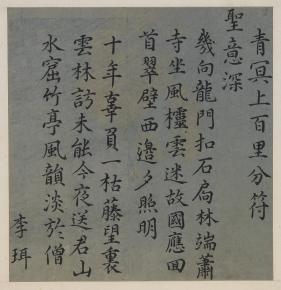 青冥上百里分符
聖意深
幾向龍門扣石扃林端蕭
寺坐風櫺雲迷故國應回
首翠壁西邊夕照明
十年辜負一枯藤望裏
雲林訪未能今夜送君山
水窟竹亭風韻淡於僧
李珥